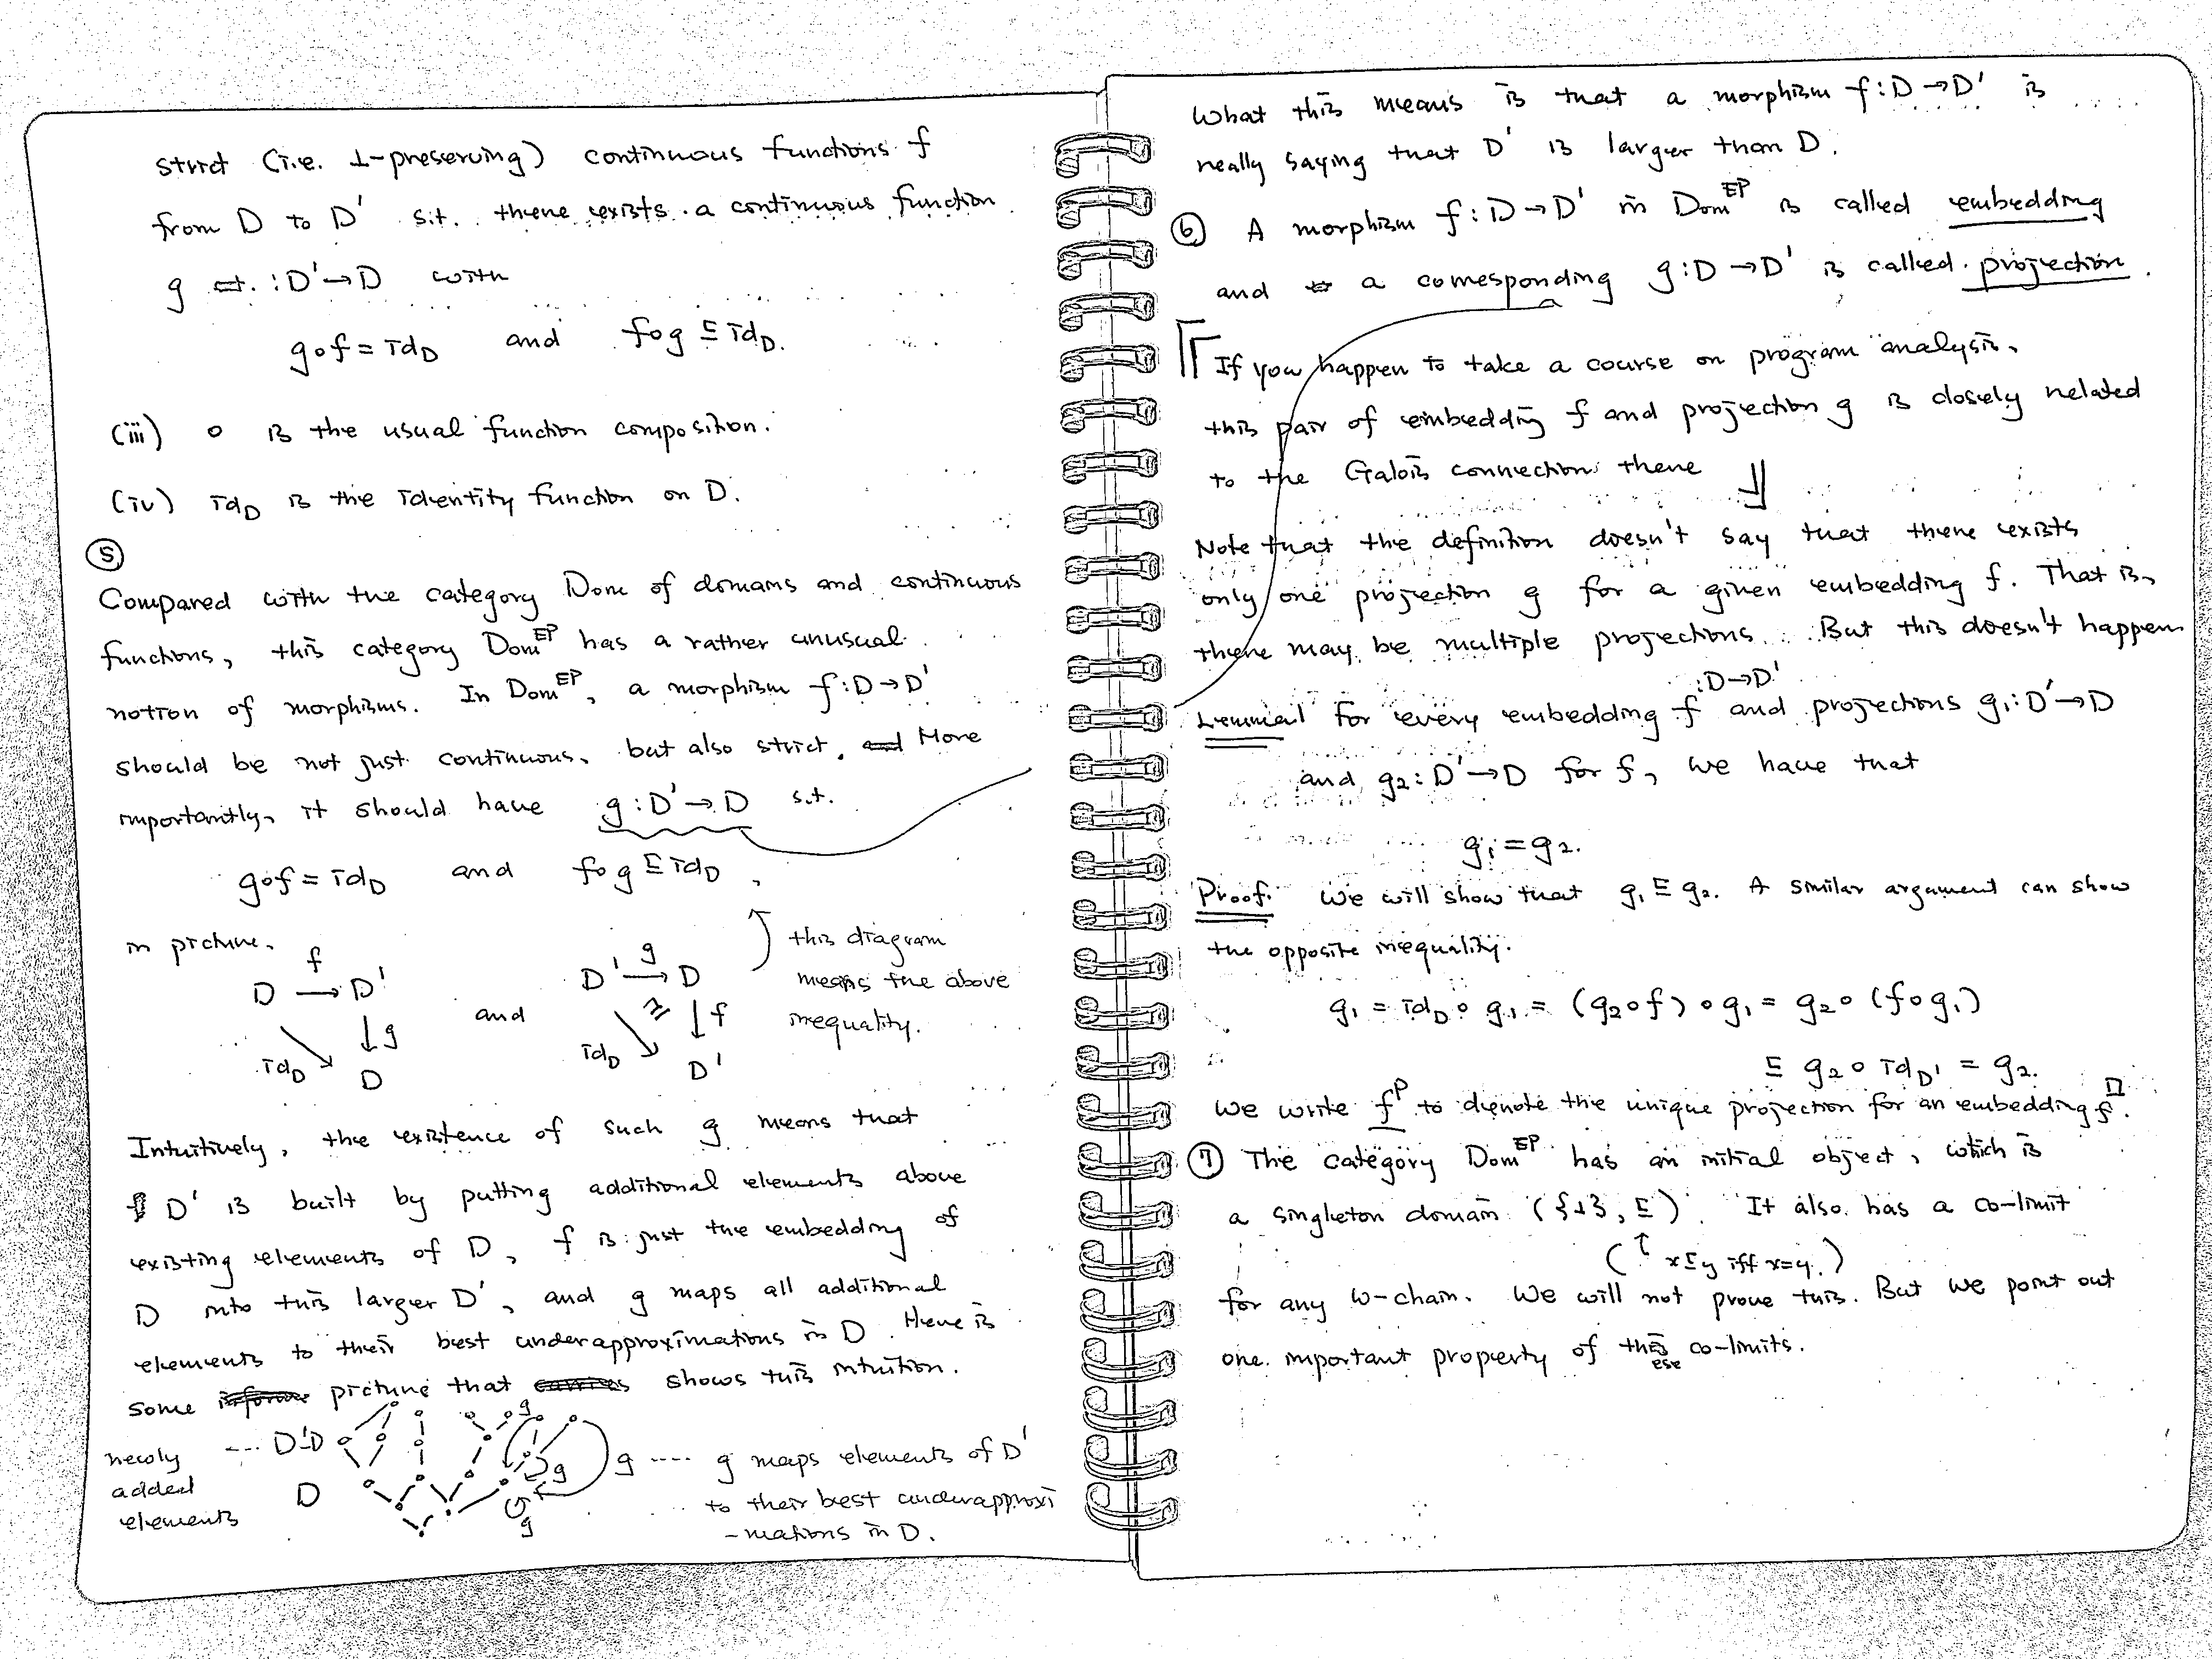 strict (i.e. ⊥-preserving) continuous functions f
from D to D' s.t. there exists a continuous function
g : D' → D with
g∘f = id_D and f∘g ⊑ id_D.
(iii) ∘ is the usual function composition.
(iv) id_D is the identity function on D.
⑤
Compared with the category Dom of domains and continuous
functions, this category Dom^EP has a rather unusual
notion of morphisms. In Dom^EP, a morphism f : D → D'
should be not just continuous, but also strict. More
importantly, it should have g : D' → D s.t.
g∘f = id_D and f∘g ⊑ id_D,
in picture,
D f→ D' and D' g→ D
id_D ↘ ↓g D
id_D ↘ ⊒ ↓f D'
this diagram
means the above
inequality.
Intuitively, the existence of such g means that
D' is built by putting additional elements above
existing elements of D, f is just the embedding of
D into this larger D', and g maps all additional
elements to their best underapproximations in D. Here is
some picture that shows this intuition.
newly
added
elements
---- D'-D
D
g
g
g
g ---- g maps elements of D'
to their best underapproxi
-mations in D.
What this means is that a morphism f : D → D' is
really saying that D' is larger than D.
⑥ A morphism f : D → D' in Dom^EP is called embedding
and a corresponding g : D → D' is called projection.
If you happen to take a course on program analysis,
this pair of embedding f and projection g is closely related
to the Galois connections there
Note that the definition doesn't say that there exists
only one projection g for a given embedding f. That is,
there may be multiple projections. But this doesn't happen
Lemma For every embedding f : D → D' and projections g₁ : D' → D
and g₂ : D' → D for f, we have that
g₁ = g₂.
Proof. We will show that g₁ ⊑ g₂. A similar argument can show
the opposite inequality.
g₁ = id_D ∘ g₁ = (g₂∘f) ∘ g₁ = g₂ ∘ (f∘g₁)
⊑ g₂ ∘ id_D' = g₂. □
We write f^P to denote the unique projection for an embedding f.
⑦ The category Dom^EP has an initial object, which is
a singleton domain ({⊥}, ⊑). It also has a co-limit
(↑ x⊑y iff x=y.)
for any ω-chain. We will not prove this. But we point out
one important property of these co-limits.